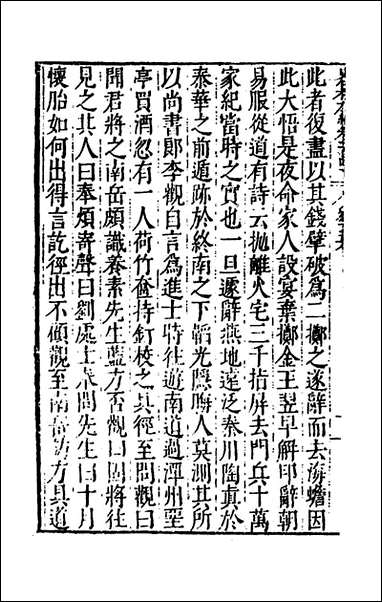 此者復盡以其錢擘破爲二擲之遂辭而去海蟾因
此大悟是夜命家人設宴棄擲金玉翌早解印辭朝
易服從道有詩云抛離火宅三千指屏去門兵十萬
家紀當時之實也一旦遂辭燕地遠泛秦川陶真於
泰華之前遁跡於終南之下韜光隱晦人莫測其所
以尚書郎李觀自言爲進士時往遊南道過潭州堊
亭買酒忽有一人荷竹奩持釘校之具徑至問觀曰
聞君將之南岳頗識養素先生藍方否觀曰固將往
見之其人曰奉煩寄聲曰劉處士奉問先生曰十月
懷胎如何出得言訖徑出不顧觀至南岳訪方具道